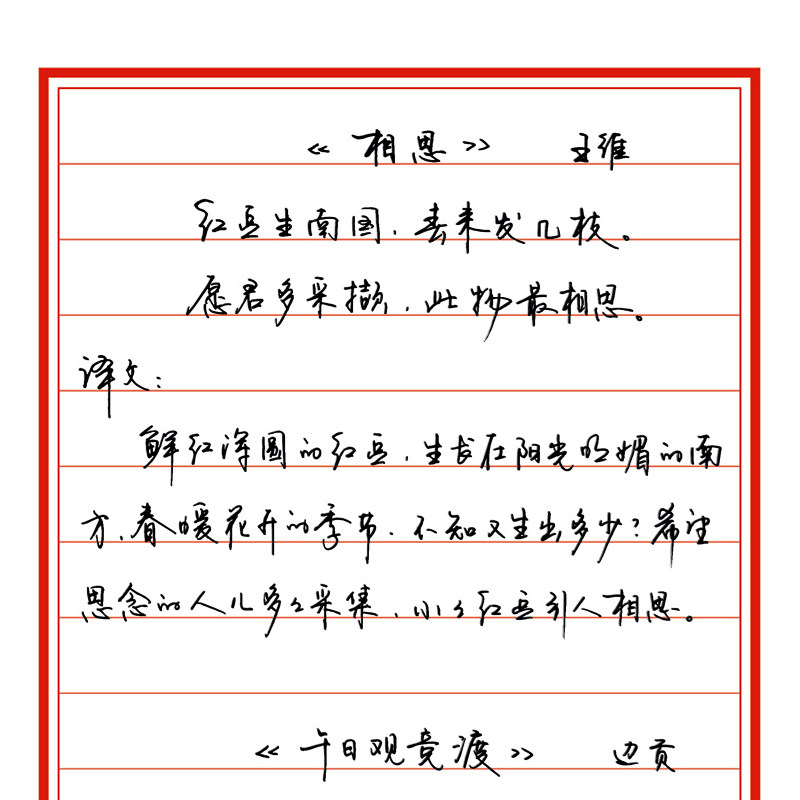 《相思》 王维
红豆生南国，春来发几枝。
愿君多采撷，此物最相思。
译文：
鲜红浑圆的红豆，生长在阳光明媚的南
方，春暖花开的季节，不知又生出多少？希望
思念的人儿多多采集，小小红豆引人相思。
《午日观竞渡》 边贡